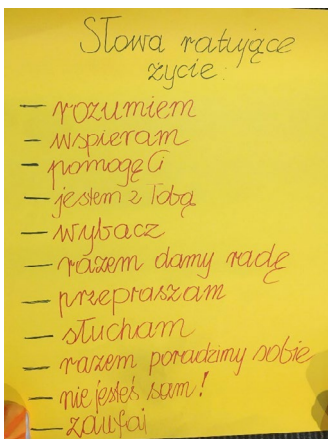 Słowa ratujące
życie:
– rozumiem
– wspieram
– pomogę Ci
– jestem z Tobą
– wybacz
– razem damy radę
– przepraszam
– słucham
– razem poradzimy sobie
– nie jesteś sam!
– zaufaj